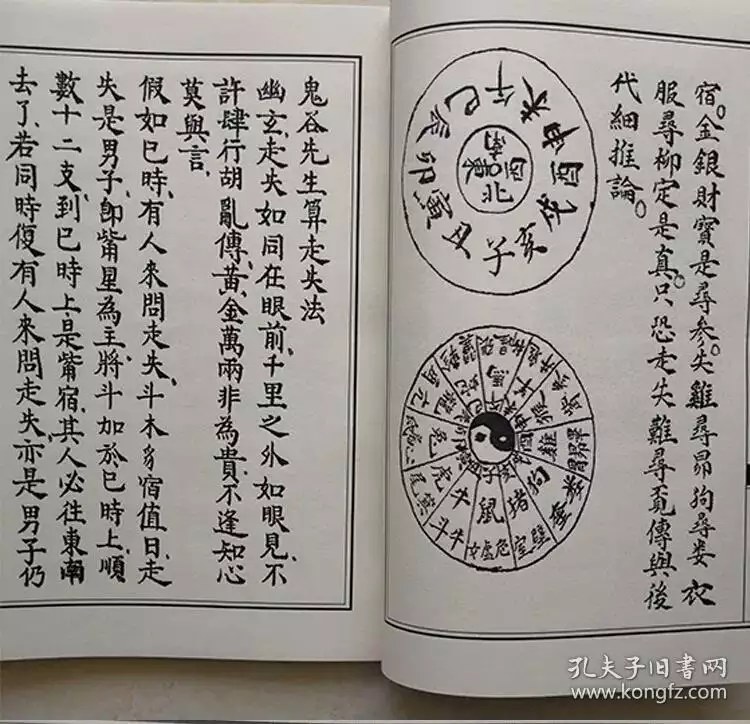 宿。金銀財寶是尋參。失雞尋昴狗尋婁衣
服尋柳定是真。只恐走失難尋覓傳與後
代細推論。
午未申酉戌亥子丑寅卯辰巳
南西北東
馬
羊
猴
雞
狗
猪
鼠
牛
虎
兔
龍
蛇
昴畢
胃
婁
奎
壁
室
危
虛
女
牛
斗
箕
尾
亢
鬼谷先生算走失法
幽玄、走失如同在眼前、千里之外如眼見、不
許肆行胡亂傳、黃金萬兩非為貴、不逢知心
莫與言、
假如巳時、有人來問走失、斗木豸宿值日、走
失是男子、即觜星為主、將斗加於巳時上、順
數十二支、到巳時上、是觜宿、其人必往東南
去了、若同時復有人來問走失、亦是男子仍
孔夫子旧书网
www.kongfz.com